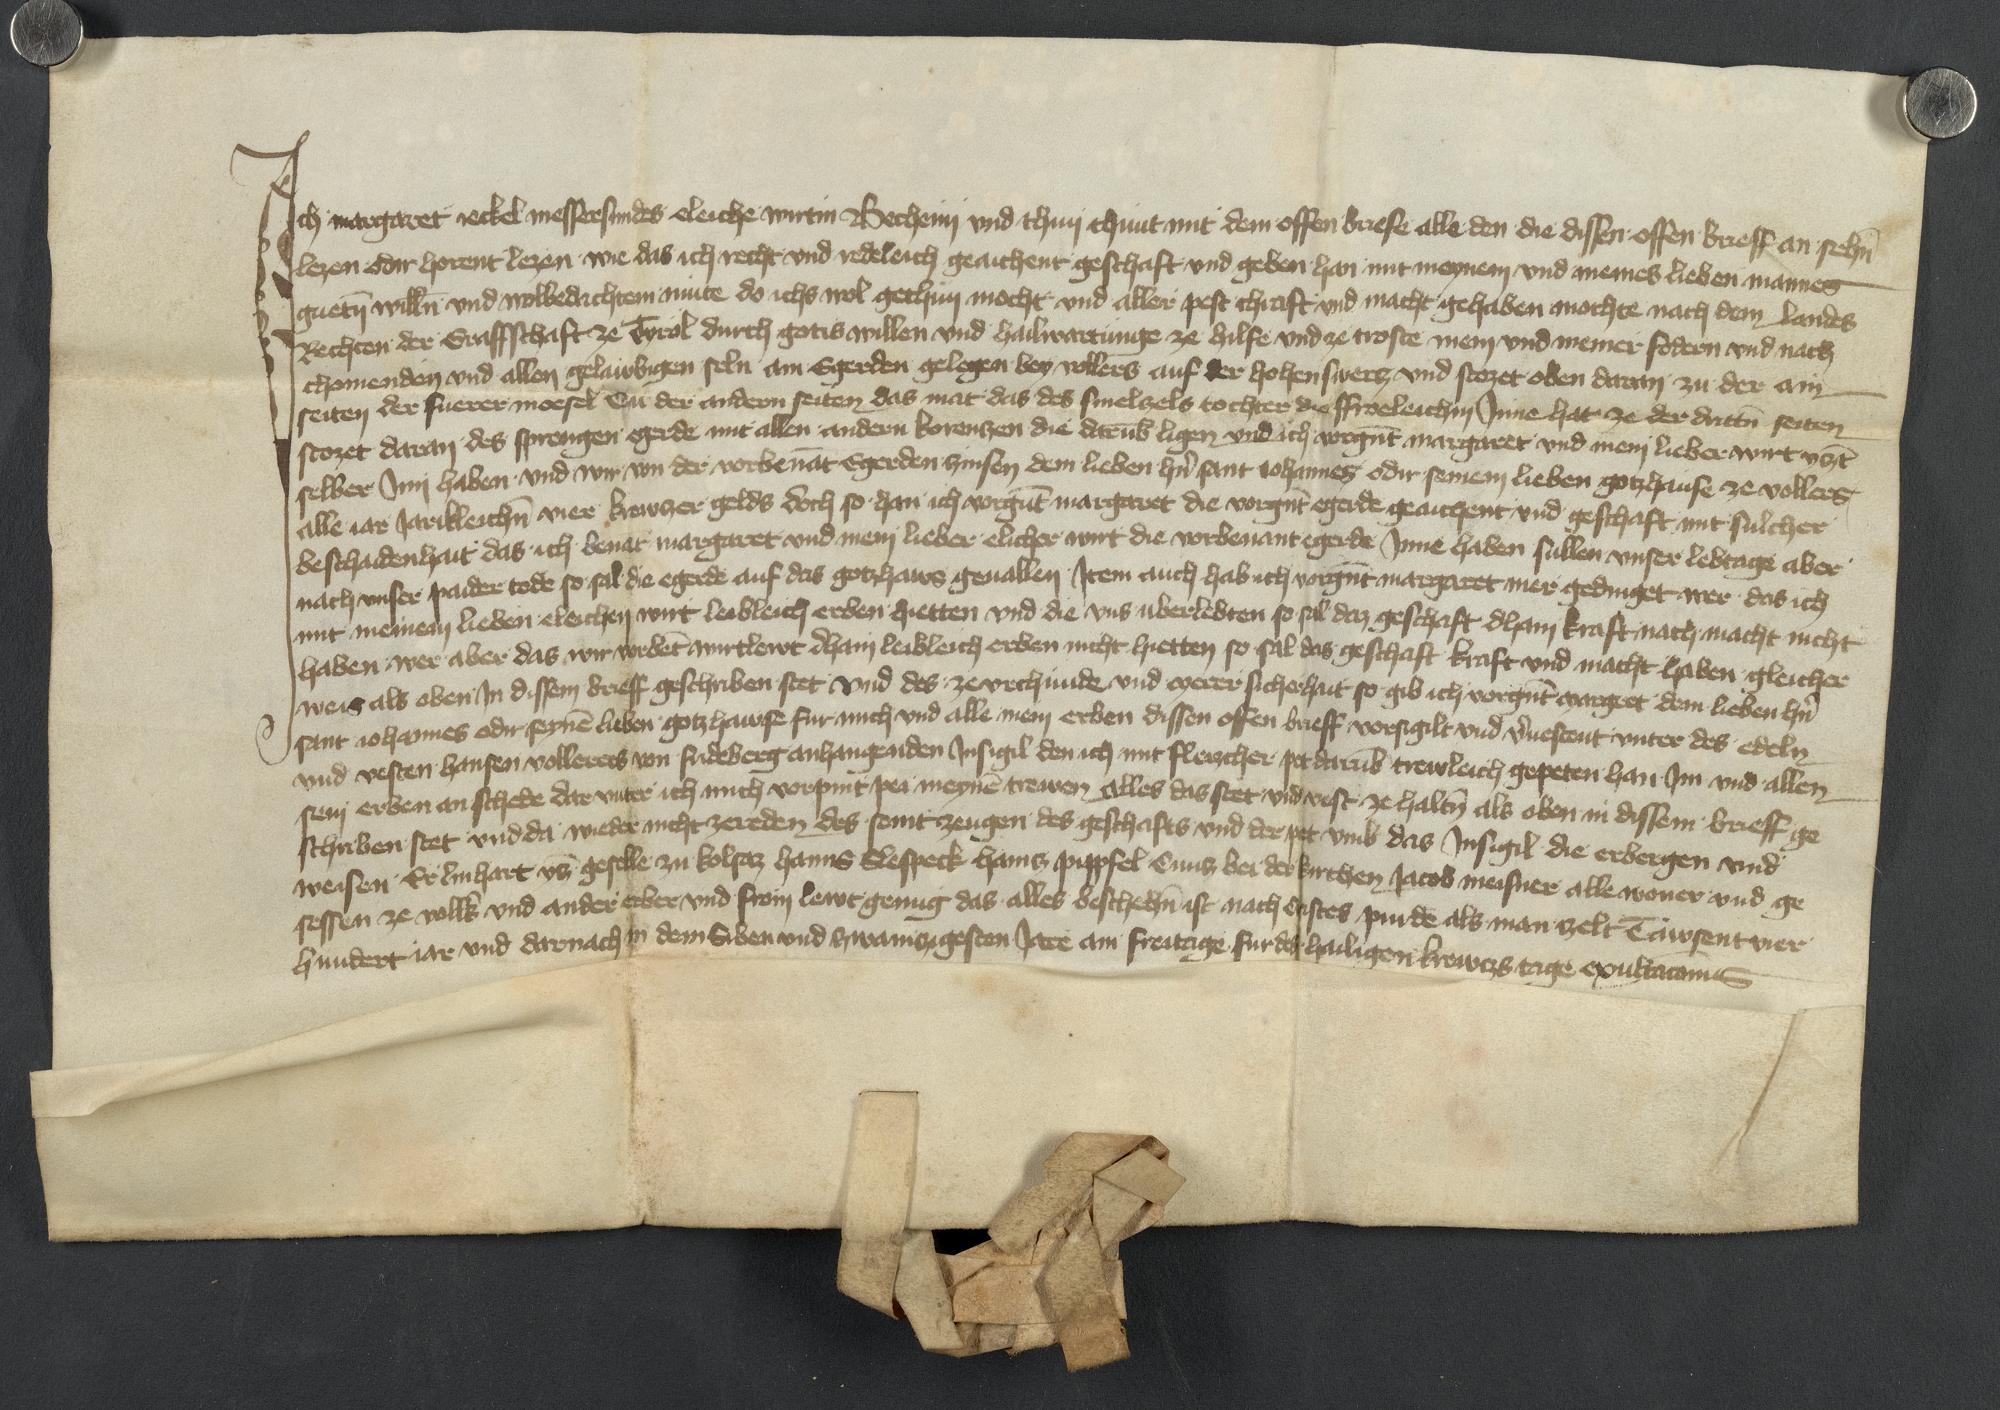 Ich margaret jeckel messersmides eleiche wirtin Vecheinn und thun chunt mit dem offen briefe alle den die dissen offen brieff an sehn̄
lezen odir horent lezen wie das ich recht vnd redeleich geaichent geschaft vnd geben han mit meynem vnd meines lieben mannes
guetn̄ willn̄ vnd wolbedachtem mute do ichs wol gethun mocht vnd aller pest chraft vnd macht gehaben mochte nach dem landes
Rechten der Graffschaft ze Tyrol durch gotis willen vnd hailwartunge ze hilfe vnd ze troste mein vnd meiner fodern vnd nach
chomenden vnd allen gelawbigen seln am Egerden gelegen bey vollers auf der hohen swercz vnd stozet oben daran zu der ain
seiten der fuerer moesel Cu der andern seiten das mat das des smelzels tochter die ffroeleichin Inne hat ze der drittn̄ seiten
stozet daran des sprengen egerde mit allen andern korenczen die darūb ligen vnd ich vorgn̄t margaret vnd mein lieber wirt yczt̄
selber Inn haben vnd wir von der vorbenāt Egerden zinsen dem lieben hn̄ sant Iohannes odir seinem lieben gotzhause ze vollers
alle iar Jarikleichn̄ vier krewczer gelds doch so han ich vorgn̄t margaret die vorgn̄t egerde geaichent vnd geschaft mit sulcher
beschaidenhait das ich benāt margaret vnd mein lieber elicher wirt die vorbenant egerde Inne haben sullen vnser lebtage aber
nach vnser paider tode so sal die egerde auf das gotzhaws geuallen Item auch hab ich vorgn̄t margaret mer gedinget wer das ich
mit meinem lieben eleichen wirt leibleich erben hietten vnd die vns uberlebten so sal daz geschaft dhain kraft nach macht nicht
haben wer aber das wir vorbēt wirtlewt dhain leibleich erben nicht hietten so sal das geschaft kraft vnd macht haben gleicher
weis als oben In dissem brieff geschriben stet Vnd des ze vrchunde vnd merer sicherhait so gib ich vorgn̄t margret dem lieben hn̄
sant iohannes odir seynē lieben gotzhawse fur mich vnd alle mein erben dissen offen brieff vorsigilt vnd v̄uestent vnter des edeln
vnd vesten hansen vollerers von frideberg anhangenden Insigil den ich mit fleizcher pet darūb trewleich gepeten han Im vnd allen
sein erben an schede dar vnter ich mich vorpint pei meynē trewen Alles das stet vnd vest ze haltn̄ als oben in dissem brieff ge
schriben stet vnd da wieder nicht zereden des seint zeugen des geschafts vnd der pet vmb das Insigil die erbergen vnd
weisen Er linhart geselle zu kolsaz hanns Clespeck hanns pippfel Cuncz bei der kirchen Jacob meisner alle woner vnd ge
sessen ze vollers vnd ander erber vnd from lewt genug das alles beschehn̄ ist nach Cristes purde als man zelt Tawsent vier
hundert iar vnd darnach in dem Siben vnd zwainczigesten Jare am freitage fur des hailigen krewczs tage exultacionis